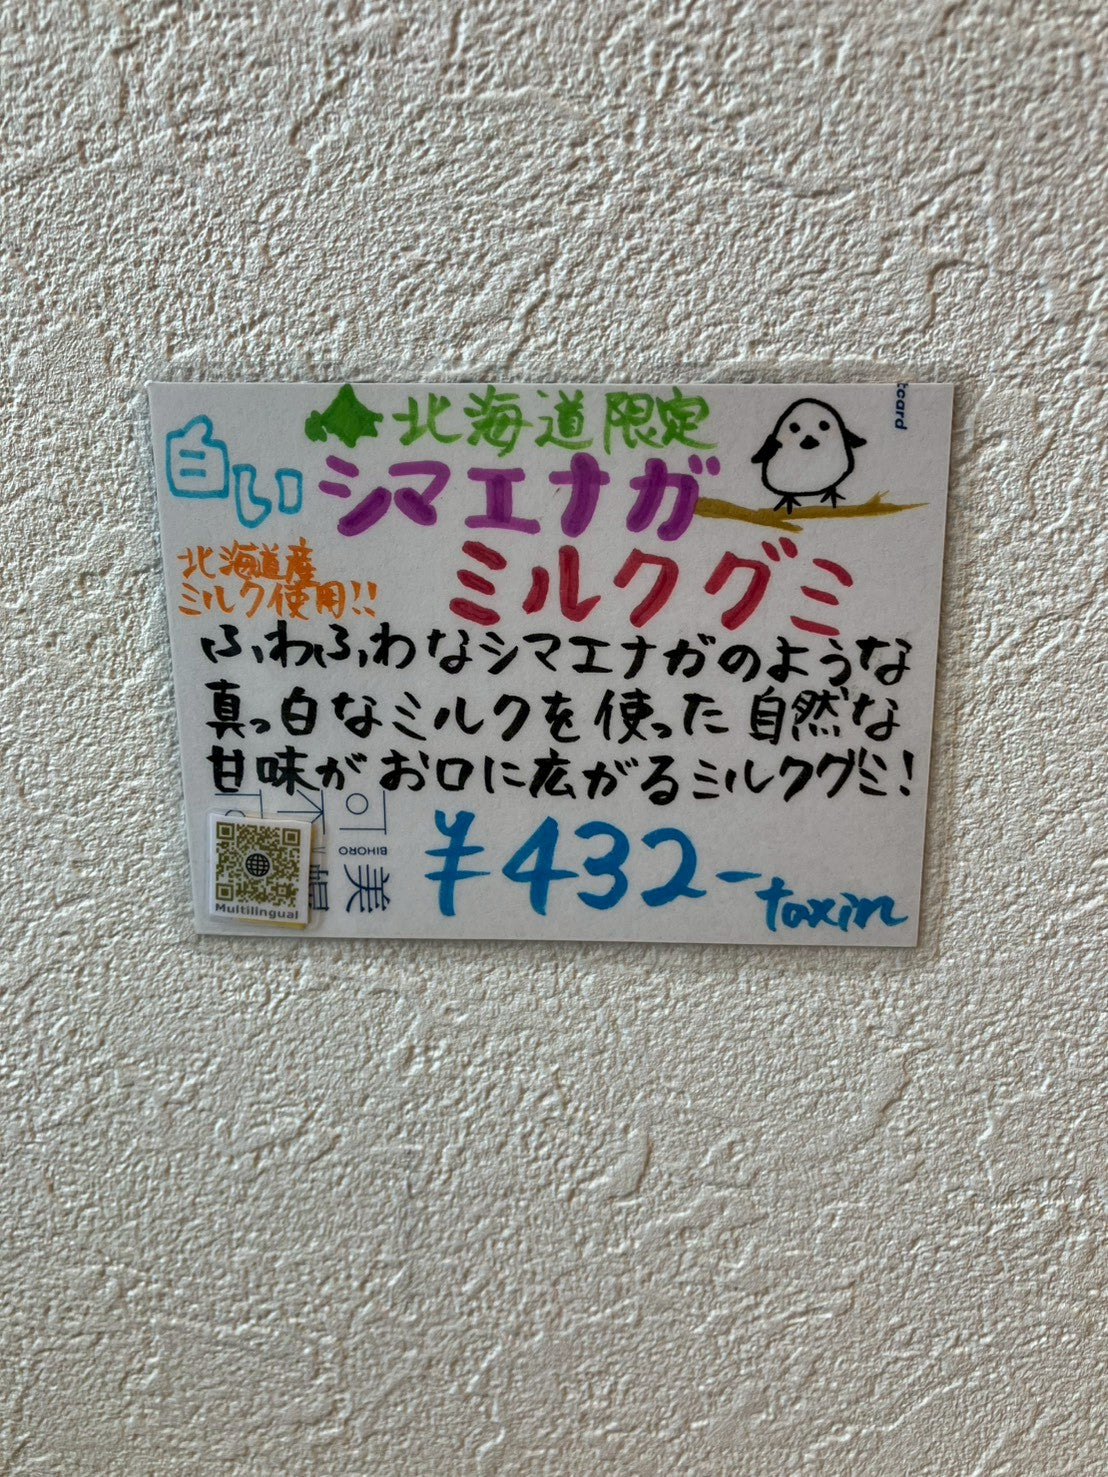 北海道限定
白い シマエナガ
ミルクグミ
北海道産
ミルク使用!!
ふわふわなシマエナガのような
真っ白なミルクを使った自然な
甘味がお口に広がるミルクグミ!
¥432-
taxin
Multilingual
BIHORO
美幌
tcard